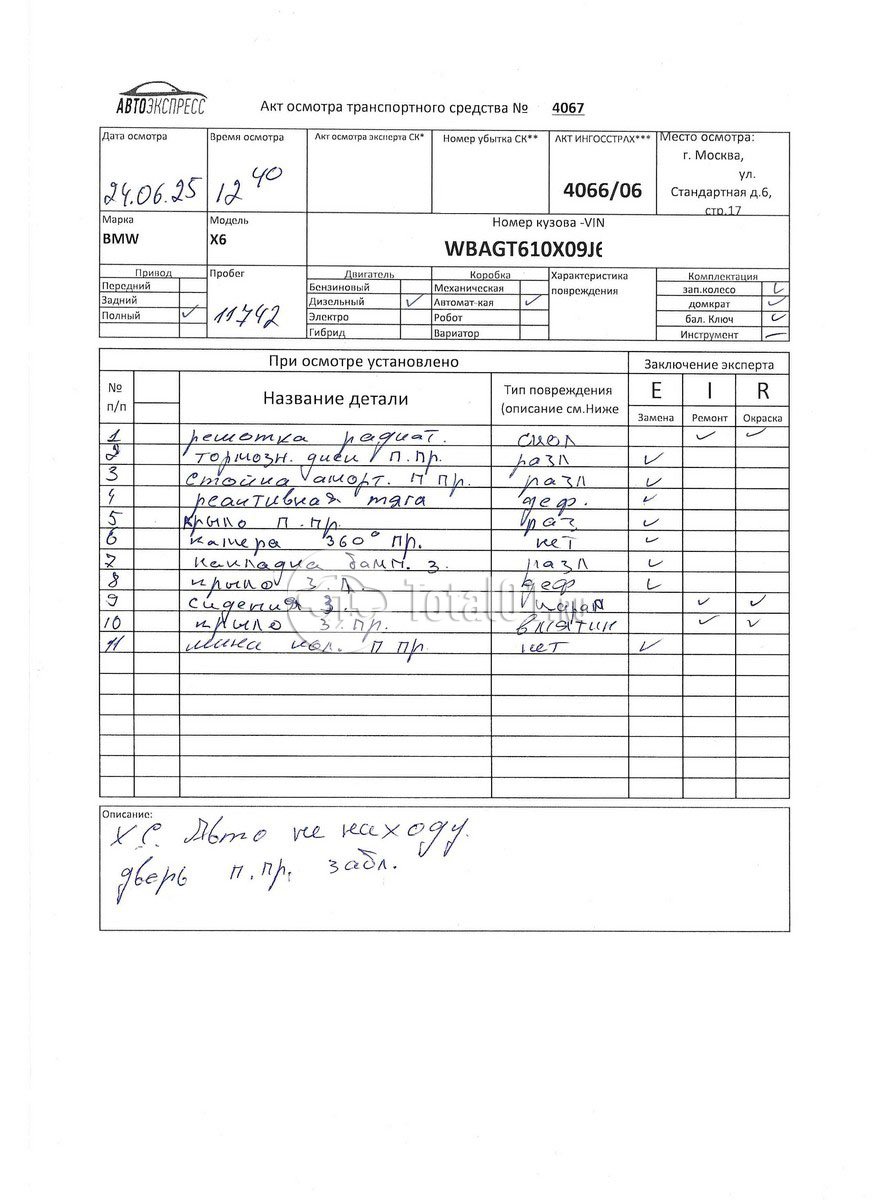 АВТОЭКСПРЕСС
Акт осмотра транспортного средства № 4067
Дата осмотра
24.06.25
Время осмотра
12 40
Акт осмотра эксперта СК*
Номер убытка СК**
АКТ ИНГОССТРАХ***
4066/06
Место осмотра:
г. Москва,
ул.
Стандартная д.6,
стр.17
Марка
BMW
Модель
X6
Номер кузова -VIN
WBAGT610X09J6
Привод
Передний
Задний
Полный ✓
Пробег
11742
Двигатель
Бензиновый
Дизельный ✓
Электро
Гибрид
Коробка
Механическая
Автомат-кая ✓
Робот
Вариатор
Характеристика
повреждения
Комплектация
зап.колесо ✓
домкрат ✓
бал. Ключ ✓
Инструмент —
При осмотре установлено
Заключение эксперта
№
п/п
Название детали
Тип повреждения
(описание см.Ниже
E I R
Замена Ремонт Окраска
1 решотка радиат. скол ✓ ✓
2 тормозн. диск п.пр. разл ✓
3 стойка аморт. п пр. разл ✓
4 реактивная тяга деф. ✓
5 крыло п.пр. раз ✓
6 камера 360° пр. нет ✓
7 накладка бамп. з. разл ✓
8 крыло з л деф ✓
9 сидения з. царап ✓ ✓
10 крыло з.пр. вмятин ✓ ✓
11 шина кол. п пр. нет ✓
Total01.RU
Описание:
Х С. Авто не на ходу.
дверь п.пр. забл.